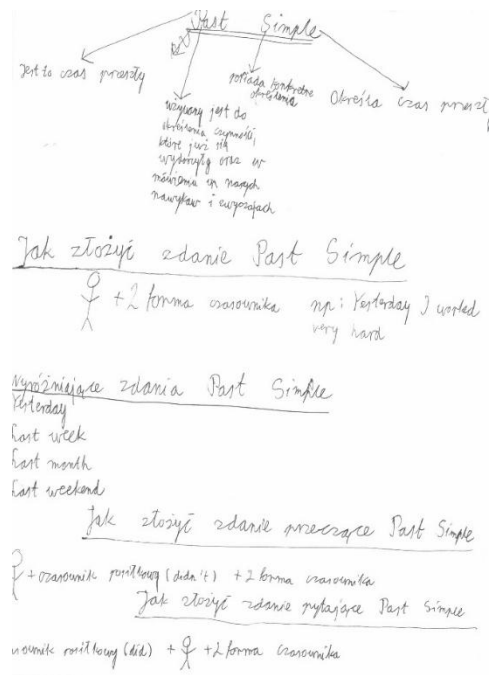 Past Simple
Jest to czas przeszły
używany jest do
określenia czynności,
które już się
wydarzyły oraz w
mówieniu o naszych
nawykach i zwyczajach
posiada konkretne
określenia
Określa czas przeszł
Jak złożyć zdanie Past Simple
+ 2 forma czasownika np: Yesterday I worked
very hard
Wyróżniające zdania Past Simple
Yesterday
Last week
Last month
Last weekend
Jak złożyć zdanie przeczące Past Simple
+ czasownik posiłkowy (didn't) + 2 forma czasownika
Jak złożyć zdanie pytające Past Simple
sownik posiłkowy (did) + + 2 forma czasownika